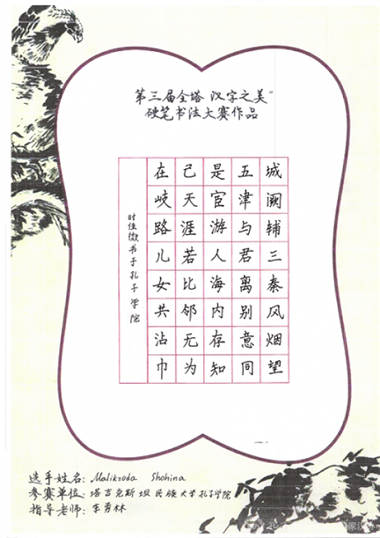 第三届全塔"汉字之美"
硬笔书法大赛作品
城阙辅三秦风烟望
五津与君离别意同
是宦游人海内存知
己天涯若比邻无为
在岐路儿女共沾巾
时佳微书于孔子学院
选手姓名: Malikzoda Shohina
参赛单位: 塔吉克斯坦民族大学孔子学院
指导老师: